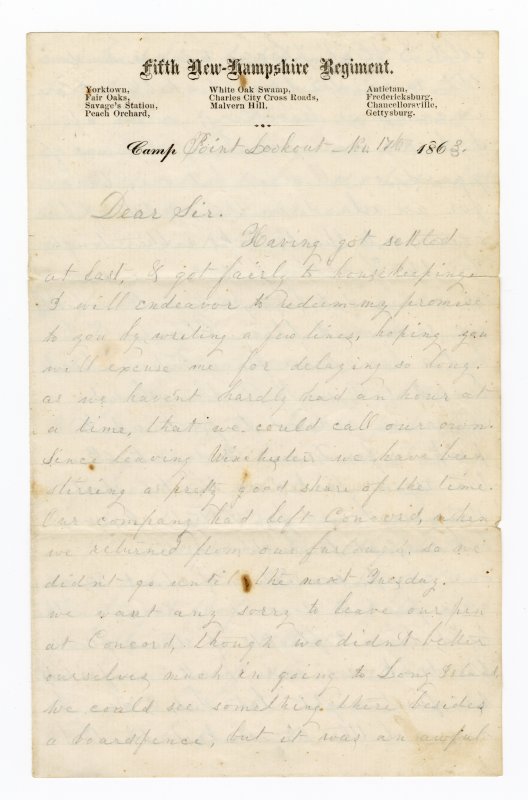 Fifth New-Hampshire Regiment.
Yorktown,
Fair Oaks,
Savage's Station,
Peach Orchard,
White Oak Swamp,
Charles City Cross Roads,
Malvern Hill.
Antietam,
Fredericksburg,
Chancellorsville,
Gettysburg.
Camp Point Lookout Nov. 17th 1863.
Dear Sir.
Having got settled
at last, & got fairly to housekeeping
I will endeavor to redeem my promise
to you by writing a few lines, hoping you
will excuse me for delaying so long.
as we havent hardly had an hour at
a time, that we could call our own.
Since leaving Winchester we have been
stirring a pretty good share of the time.
Our company had left Concord, when
we returned from our furlough, so we
didn't go until the next Tuesday.
we want any sorry to leave our pen
at Concord, though we didn't better
ourselves much in going to Long Island,
we could see something there besides
a boardfence, but it was an awful